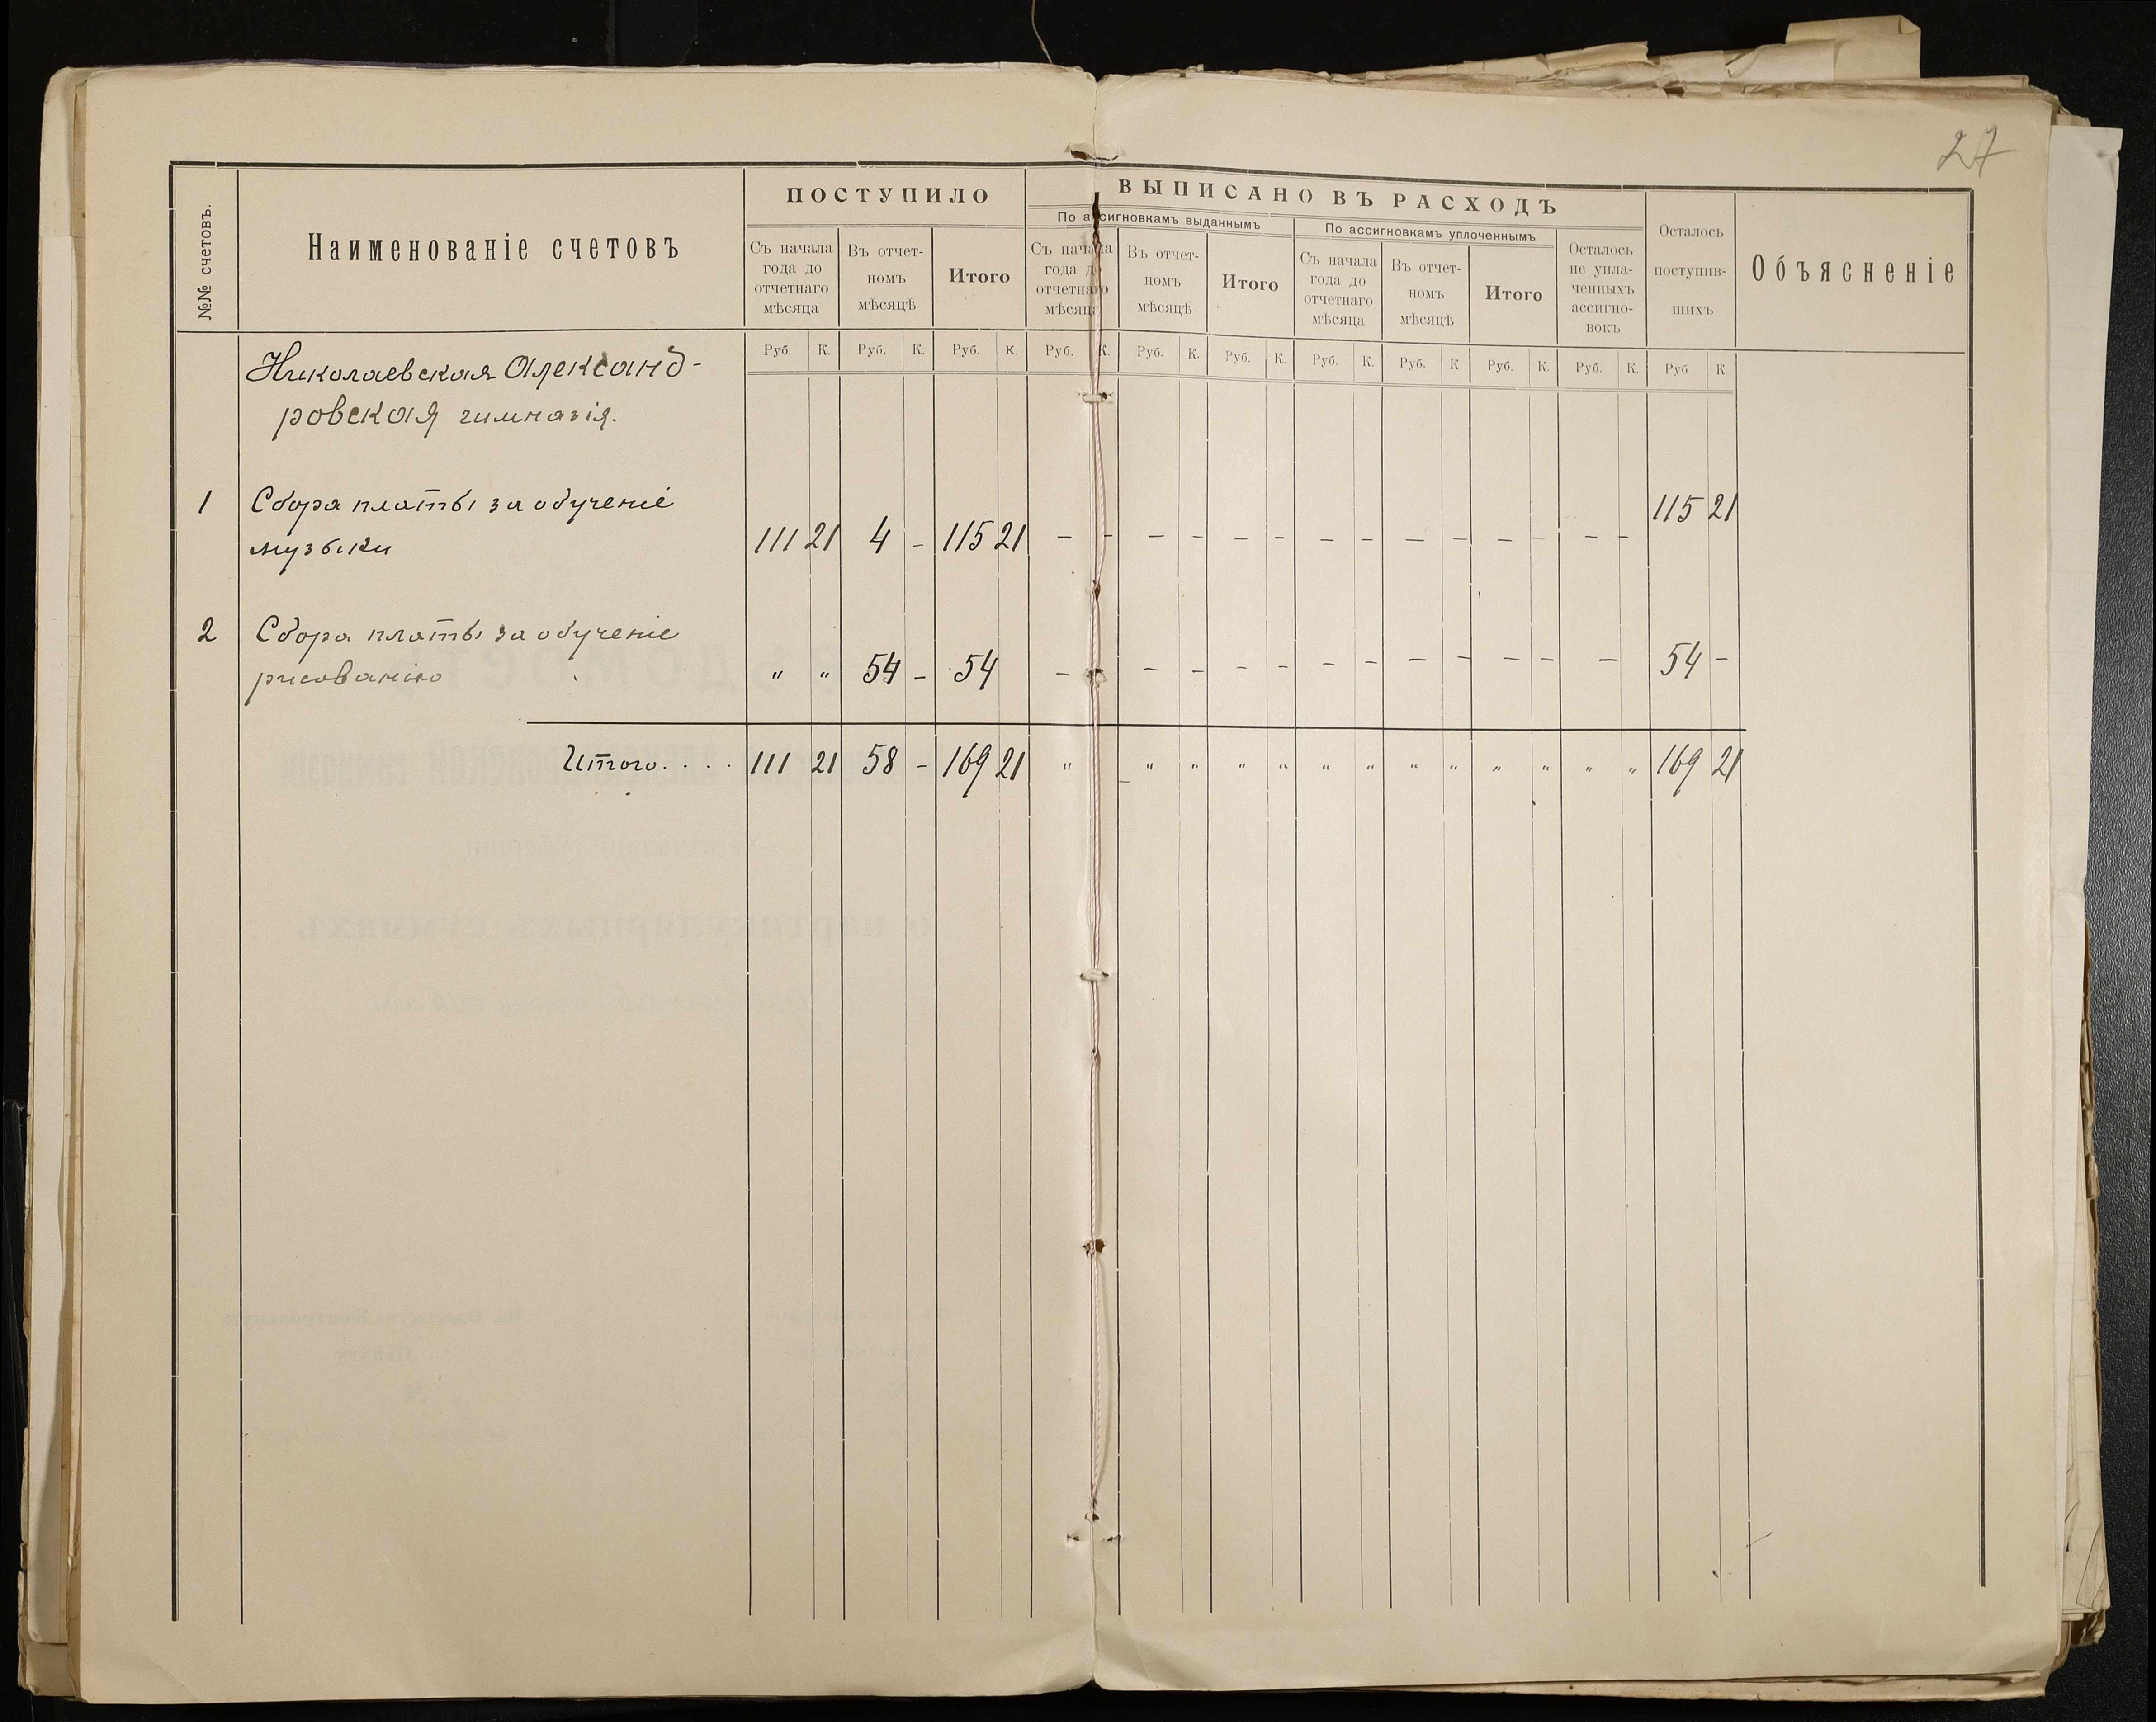 27
№№ счетовъ.
Наименованіе счетовъ
ПОСТУПИЛО
Съ начала
года до
отчетнаго
мѣсяца
Въ отчет-
номъ
мѣсяцѣ
Итого
ВЫПИСАНО ВЪ РАСХОДЪ
По ассигновкамъ выданнымъ
Съ начала
года до
отчетнаго
мѣсяца
Въ отчет-
номъ
мѣсяцѣ
Итого
По ассигновкамъ уплоченнымъ
Съ начала
года до
отчетнаго
мѣсяца
Въ отчет-
номъ
мѣсяцѣ
Итого
Осталось
не упла-
ченныхъ
ассигно-
вокъ
Осталось
поступив-
шихъ
Объясненіе
Руб. К. Руб. К. Руб. К. Руб. К. Руб. К. Руб. К. Руб. К. Руб. К. Руб. К. Руб. К. Руб К.
Николаевская Александ-
ровская гимназія.
1 Сбора платы за обученіе
музыки 111 21 4 - 115 21 - - - - - - - - - - - - - - 115 21
2 Сбора платы за обученіе
рисованію " " 54 - 54 - - - - - - - - - - - - 54 -
Итого.... 111 21 58 - 169 21 " " " " " " " " " " " " " 169 21